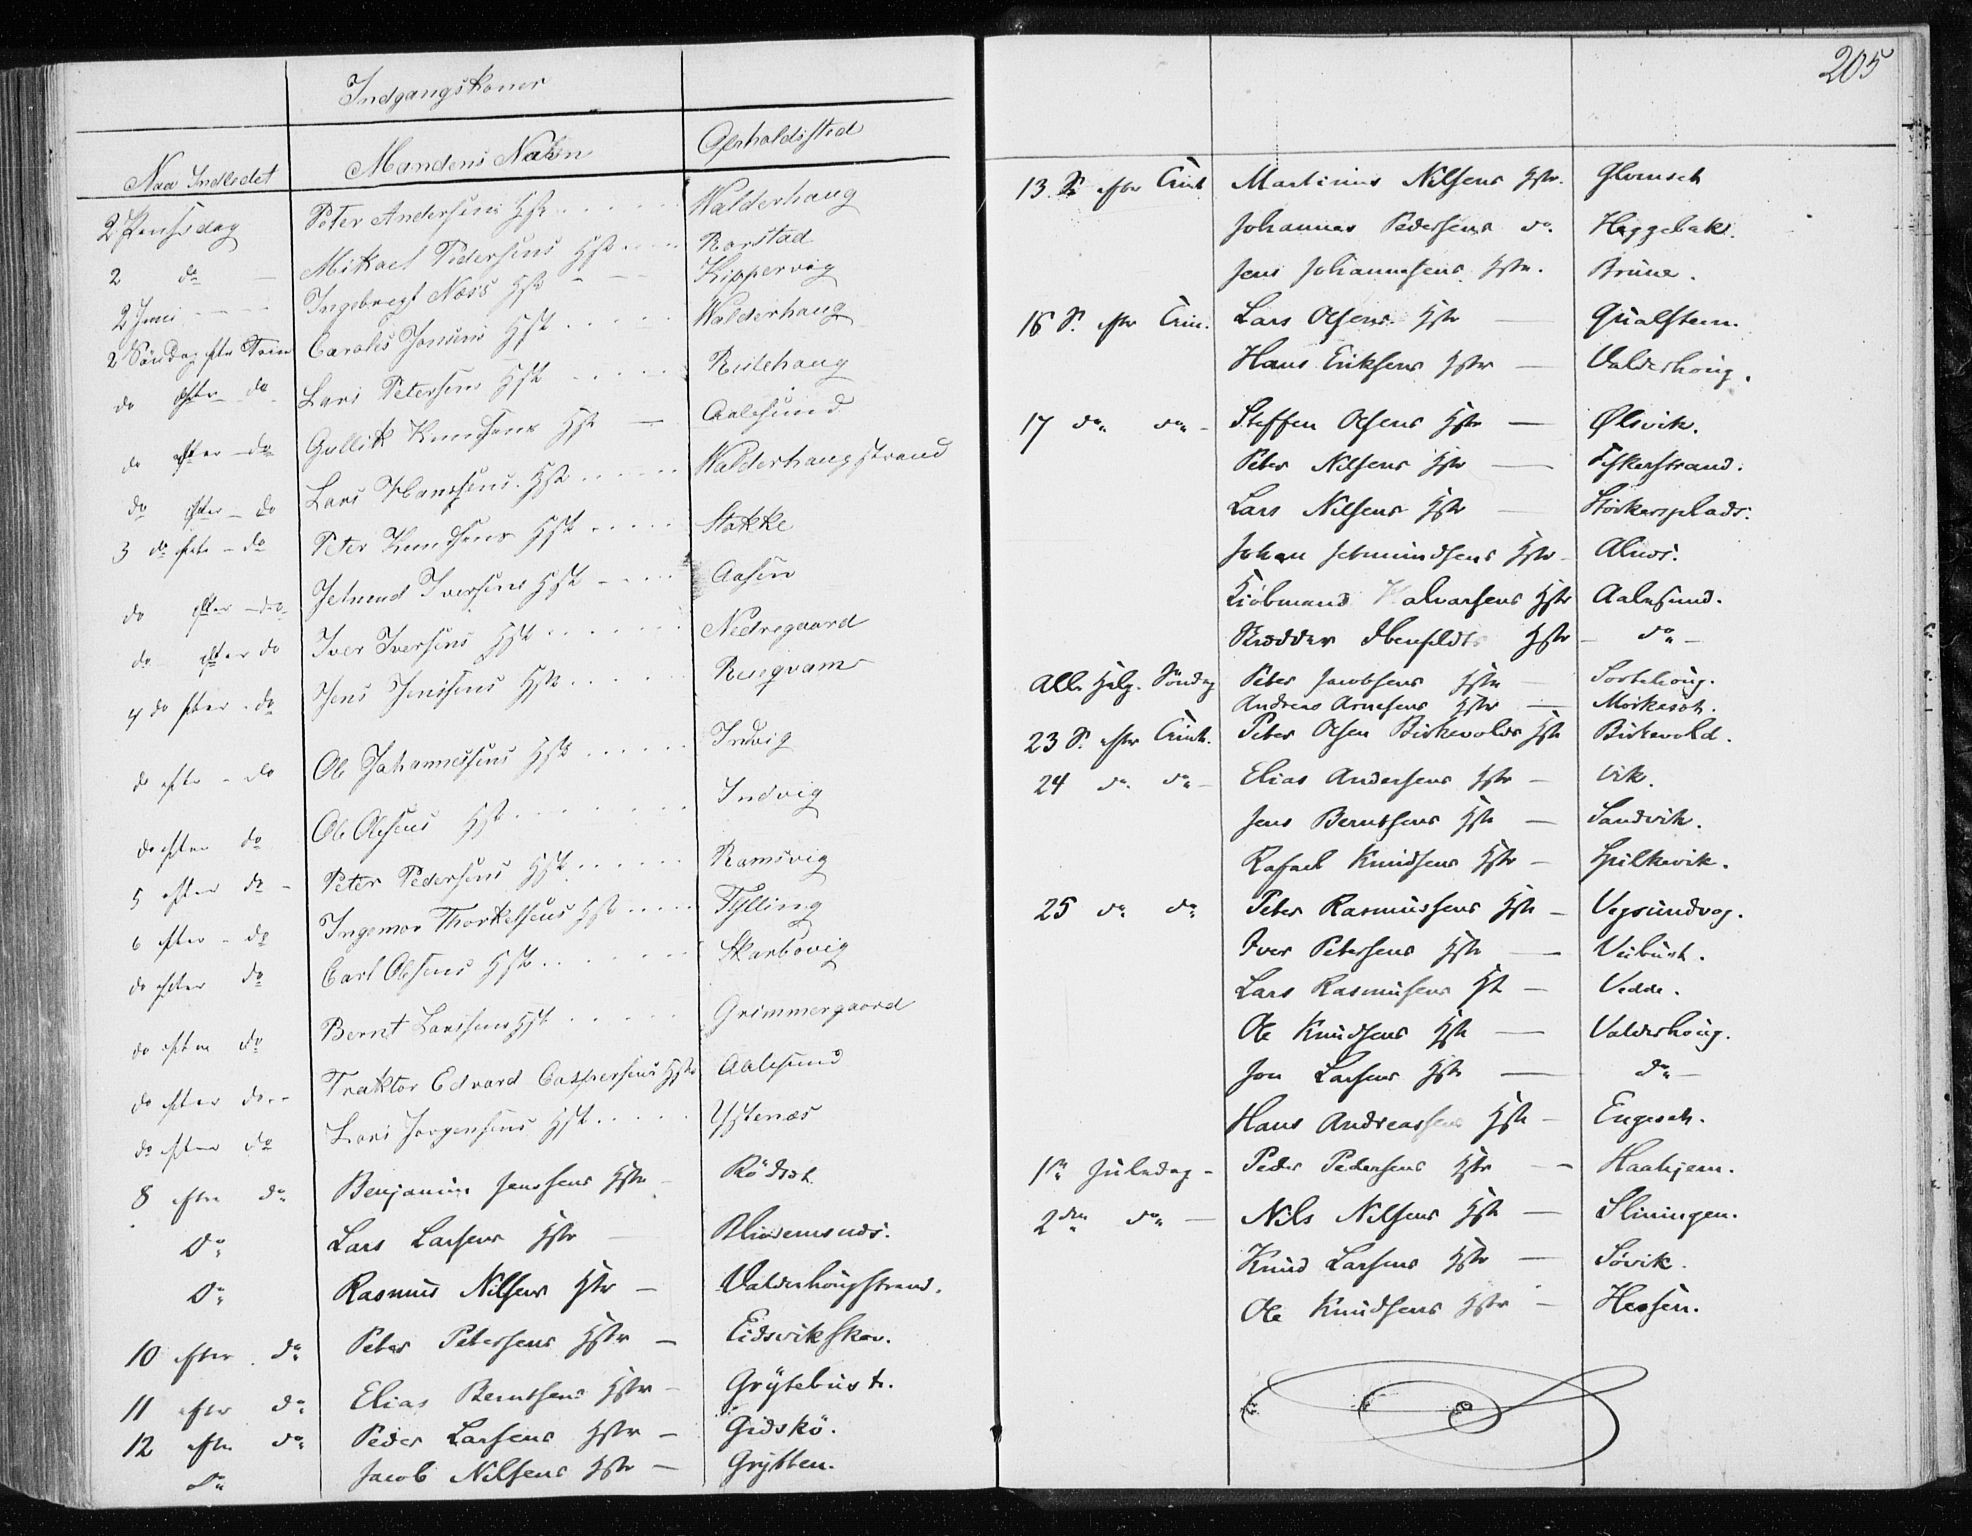 Indgangskoner
Naa Indledet Mandens Nafn Opholdssted
2 Pinsedag Peter Andersens Hst Walderhaug
2 do Mikael Pedersens Hst Rorstad
2 Juni Ingebregt Næss Hst Kippervig
2 Søndag efter Trin Caroles Jonsens Hst Walderhaug
do efter do Lars Petersens Hst
do efter do Gullik Knudsens Hst Aalesund
do efter do Lars Hanssens Hst Walderhaugstrand
3 do efter do Peter Knudsens Hst Stokke
do efter do Jetmund Iversens Hst Aasen
do efter do Iver Iversens Hst Nedregaard
4 do efter do Jens Jensens Hst
do efter do Ole Johannesens Hst Indvig
do efter do Ole Olesens Hst Indvig
5 efter do Peter Pedersens Hst Ramsvig
6 efter do Ingemor Thorkelsens Hst Tylling
do efter do Carl Olesens Hst Skarbøvig
do efter do Bernt Larsens Hst Grimmergaard
do efter do Traktør Edvard Caspersens Hst Aalesund
do efter do Lars Jørgensens Hst Ystenæs
8 efter do Benjamin Jenssens Hstr Rödset
Do Lars Larsens Hstr Blindemsnds.
Do Rasmus Nilsens Hstr Valderhougstrand.
10 efter do Peter Petersens Hstr Eidsvikskov.
11 efter do Elias Berntsens Hstr Grytebust.
12 efter do Peder Larsens Hstr Gidskö.
Do Jacob Nilsens Hstr Grytten.
205
13 S. efter Trint Martinus Nilsens Hstr. Glomset
Johannes Pedersens do. Heggebak.
Jens Johannesens Hstr. Brune.
16 S. efter Trin. Lars Olsens Hstr Gualstein.
Hans Eriksens Hstr Valderhoug.
17 do do Steffen Olsens Hstr Ølsvik.
Peter Nilsens Hstr Fiskerstrand.
Lars Nilsens Hstr Storkersplads.
Johan Jetmundsens Hstr Alnes.
Kiöbmand Halvarsens Hstr Aalesund.
Rædder Ibenfeldts Hstr do
Alle Helg. Söndag Peter Jacobsens Hstr Sortehoug.
Andreas Arnesens Hstr Morkeset.
23 S. efter Trint. Peter Olsen Birkevolds Hstr Birkevold.
24 do. do Elias Andersens Hstr Vik.
Jens Berntsens Hstr Sandvik.
Rafael Knudsens Hstr Spilkevik.
25 do do Peter Rasmussens Hstr Vegsundvog.
Iver Petersens Hstr Veibust.
Lars Rasmusens Hst Vedde.
Ole Knudsens Hstr Valderhoug.
Jon Larsens Hstr do
Hans Andreassens Hstr Engeset.
1ste Juledag Peder Pedersens Hstr Haahjem.
2den do Nils Nilsens Hstr Slinningen.
Knud Larsens Hstr Sövik.
Ole Knudsens Hstr Hessen.